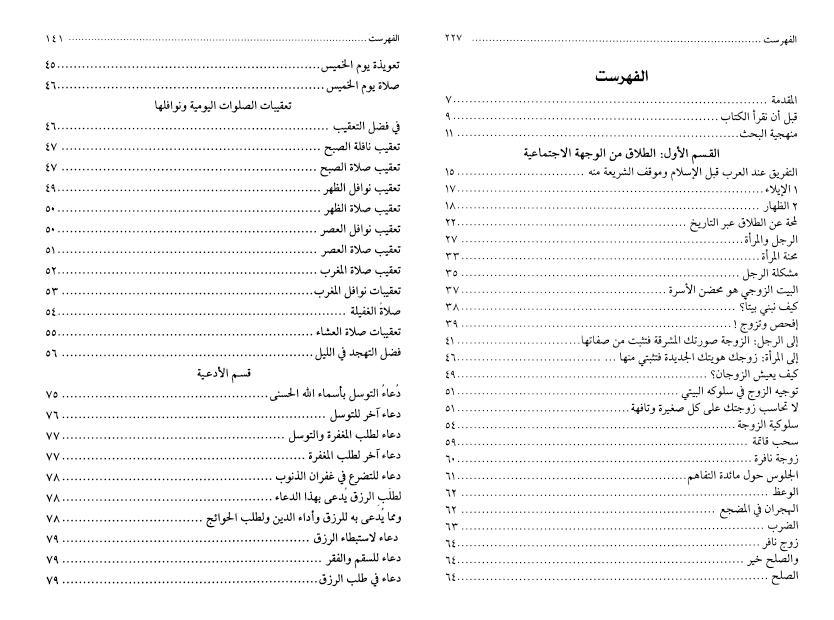 الفهرست ........ ٢٢٧
الفهرست
المقدمة ........ ٧
قبل أن نقرأ الكتاب ........ ٩
منهجية البحث ........ ١١
القسم الأول: الطلاق من الوجهة الاجتماعية
التفريق عند العرب قبل الإسلام وموقف الشريعة منه ........ ١٥
١ الإيلاء ........ ١٧
٢ الظهار ........ ١٨
لمحة عن الطلاق عبر التاريخ ........ ٢٢
الرجل والمرأة ........ ٢٧
محنة المرأة ........ ٣٣
مشكلة الرجل ........ ٣٥
البيت الزوجي هو محضن الأسرة ........ ٣٧
كيف نبني بيتاً؟ ........ ٣٨
إفحص وتزوج ! ........ ٣٩
إلى الرجل: الزوجة صورتك المشرقة فتثبت من صفاتها ........ ٤١
إلى المرأة: زوجك هويتك الجديدة فتثبتي منها ........ ٤٦
كيف يعيش الزوجان؟ ........ ٤٩
توجيه الزوج في سلوكه البيتي ........ ٥١
لا تحاسب زوجتك على كل صغيرة وتافهة ........ ٥١
سلوكية الزوجة ........ ٥٤
سحب قاتمة ........ ٥٩
زوجة نافرة ........ ٦٠
الجلوس حول مائدة التفاهم ........ ٦١
الوعظ ........ ٦٢
الهجران في المضجع ........ ٦٢
الضرب ........ ٦٣
زوج نافر ........ ٦٤
والصلح خير ........ ٦٤
الصلح ........ ٦٤
الفهرست ........ ١٤١
تعويذة يوم الخميس ........ ٤٥
صلاة يوم الخميس ........ ٤٦
تعقيبات الصلوات اليومية ونوافلها
في فضل التعقيب ........ ٤٦
تعقيب نافلة الصبح ........ ٤٧
تعقيب صلاة الصبح ........ ٤٧
تعقيب نوافل الظهر ........ ٤٩
تعقيب صلاة الظهر ........ ٥٠
تعقيب نوافل العصر ........ ٥٠
تعقيب صلاة العصر ........ ٥١
تعقيب صلاة المغرب ........ ٥٢
تعقيبات نوافل المغرب ........ ٥٣
صلاة الغفيلة ........ ٥٤
تعقيبات صلاة العشاء ........ ٥٥
فضل التهجد في الليل ........ ٥٦
قسم الأدعية
دُعاءُ التوسل بأسماء الله الحسنى ........ ٧٥
دعاء آخر للتوسل ........ ٧٦
دعاء لطلب المغفرة والتوسل ........ ٧٧
دعاء آخر لطلب المغفرة ........ ٧٧
دعاء للتضرع في غفران الذنوب ........ ٧٨
لطلَب الرزق يُدعى بهذا الدعاء ........ ٧٨
ومما يُدَعى به للرزق وأداء الدين ولطلب الحوائج ........ ٧٨
دعاء لاستبطاء الرزق ........ ٧٩
دعاء للسقم والفقر ........ ٧٩
دعاء في طلب الرزق ........ ٧٩